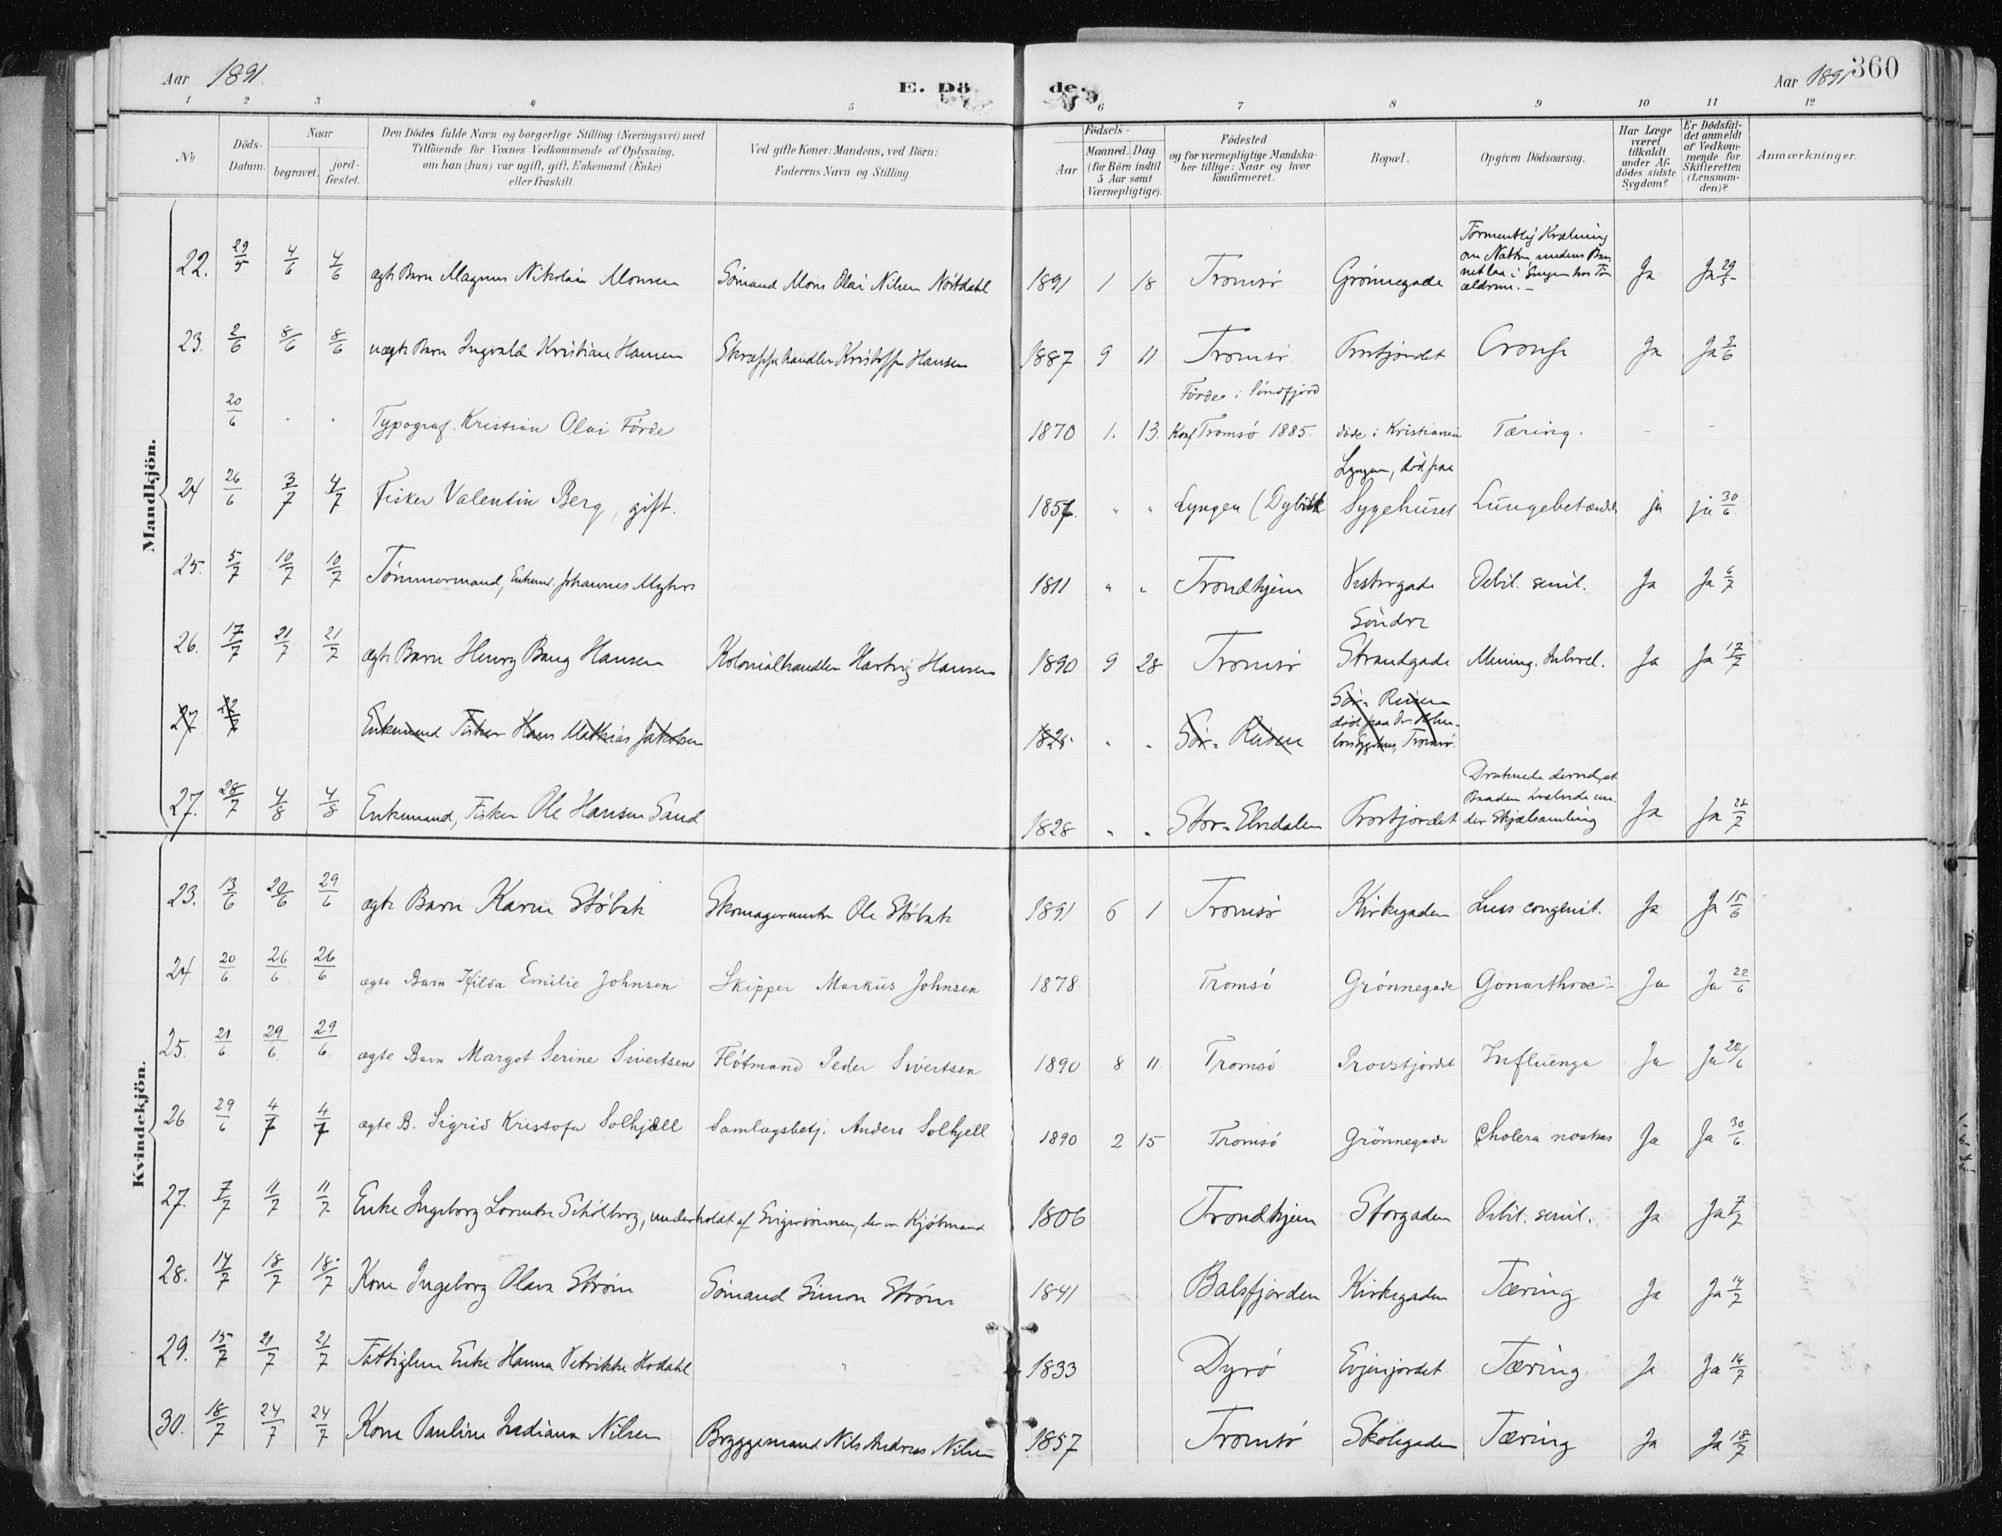 Aar 1891.
E. Dö
de.
Aar 1891
360
1 2 3 4 5 6 7 8 9 10 11 12
No
Döds-Datum.
Naar begravet. jordfæstet.
Den Dödes fulde Navn og borgerlige Stilling (Næringsvei) med Tilföiende for Voxnes Vedkommende af Oplysning, om han (hun) var ugift, gift, Enkemand (Enke) eller fraskilt.
Ved gifte Koner: Mandens, ved Börn: Faderens Navn og Stilling
Födsels- Aar Maaned. Dag. (for Börn indtil 5 Aar samt Værnepligtige).
Födested og for værnepligtige Mandskaber tillige: Naar og hvor konfirmeret.
Bopæl.
Opgiven Dödsaarsag.
Har Læge været tilkaldt under Afdödes sidste Sygdom?
Er Dödsfaldet anmeldt af Vedkommende for Skifteretten (Lensmanden)?
Anmærkninger.
Mandkjön.
22. 29/5 4/6 4/6 ægte Barn Magnus Nikolai Monsen Sömand Mons Olai Nilsen Nöstdahl 1891 1 18 Tromsö Grönnegade Formentlig Kvælning om Natten, medens Barnet laa i Sengen hos Forældrene.- Ja Ja 29/5
23. 2/6 8/6 8/6 uægte Barn Ingvald Kristian Hansen Skræppehandler Kristoffer Hansen 1887 9 11 Tromsö Provstjordet Croup Ja Ja 2/6
20/6 - - Typograf. Kristian Olai Förde 1870 1. 13. Förde i Söndfjord Konf Tromsö 1885. döde i Kristiania Tæring. - -
24 26/6 3/7 4/7 Fisker Valentin Berg, gift. 1856. " " Lyngen (Dybvik Lyngen, död paa Sygehuset Lungebetænd ja ja 30/6
25. 5/7 10/7 10/7 Tömmermand, Enkem. Johannes Myhre 1811 " " Trondhjem Vestregade Debil. senil. Ja Ja 6/7
26. 17/7 21/7 21/7 ægte Barn Henry Bang Hansen Kolonialhandler Hartvig Hansen 1890 9 28 Tromsö Söndre Strandgade Mening. tubercl. Ja Ja 17/7
27 22/7 Enkemand Fisker Hans Mathias Jakobsen 1825 " " Sör-Reisen Sör-Reisen död paa Tromsö.
27. 28/7 4/8 4/8 Enkemand, Fisker Ole Hansen Sand 1828 " " Stor-Elvedalen Provstjordet Druknede derved, at Baaden hvælvede under Skjælsamling Ja Ja 28/7
Kvindekjön.
23. 13/6 20/6 29/6 ægte Barn Karen Stöbak Skomagermester Ole Stöbak 1891 6 1 Tromsö Kirkegaden Lues congenit. Ja Ja 15/6
24 20/6 26/6 26/6 ægte Barn Hilda Emilie Johnsen Skipper Markus Johnsen 1878 Tromsö Grönnegade Gonarthroc- Ja Ja 22/6
25. 21/6 29/6. 29/6. ægte Barn Margot Serine Sivertsen Flötmand Peder Sivertsen 1890 8 11 Tromsö Provstjordet Influenza Ja Ja 22/6
26 29/6 4/7 4/7 ægte B. Sigrid Kristofa Solhjell Samlagsbetj. Anders Solhjell 1890 2 15 Tromsö Grönnegade Cholera nostras Ja Ja 30/6
27. 7/7 11/7 11/7 Enke Ingeborg Lorentze Schölberg, underholdt af Svigersönnen, der er Kjöbmand 1806 Trondhjem Storgaden Debil. senil. Ja Ja 7/7
28. 14/7 18/7 18/7 Kone Ingeborg Olava Ström Sömand Simon Ström 1841 Balsfjorden Kirkegaden Tæring Ja Ja 14/7
29. 15/7 21/7 21/7 Fattiglem Enke Hanna Petrikke Hodahl " 1833 Dyrö Evjenjordet Tæring Ja Ja 16/7
30. 18/7 24/7 24/7 Kone Pauline Indiana Nilsen Bryggemand Nils Andreas Nilsen 1857 Tromsö Skolegaden Tæring Ja Ja 18/7